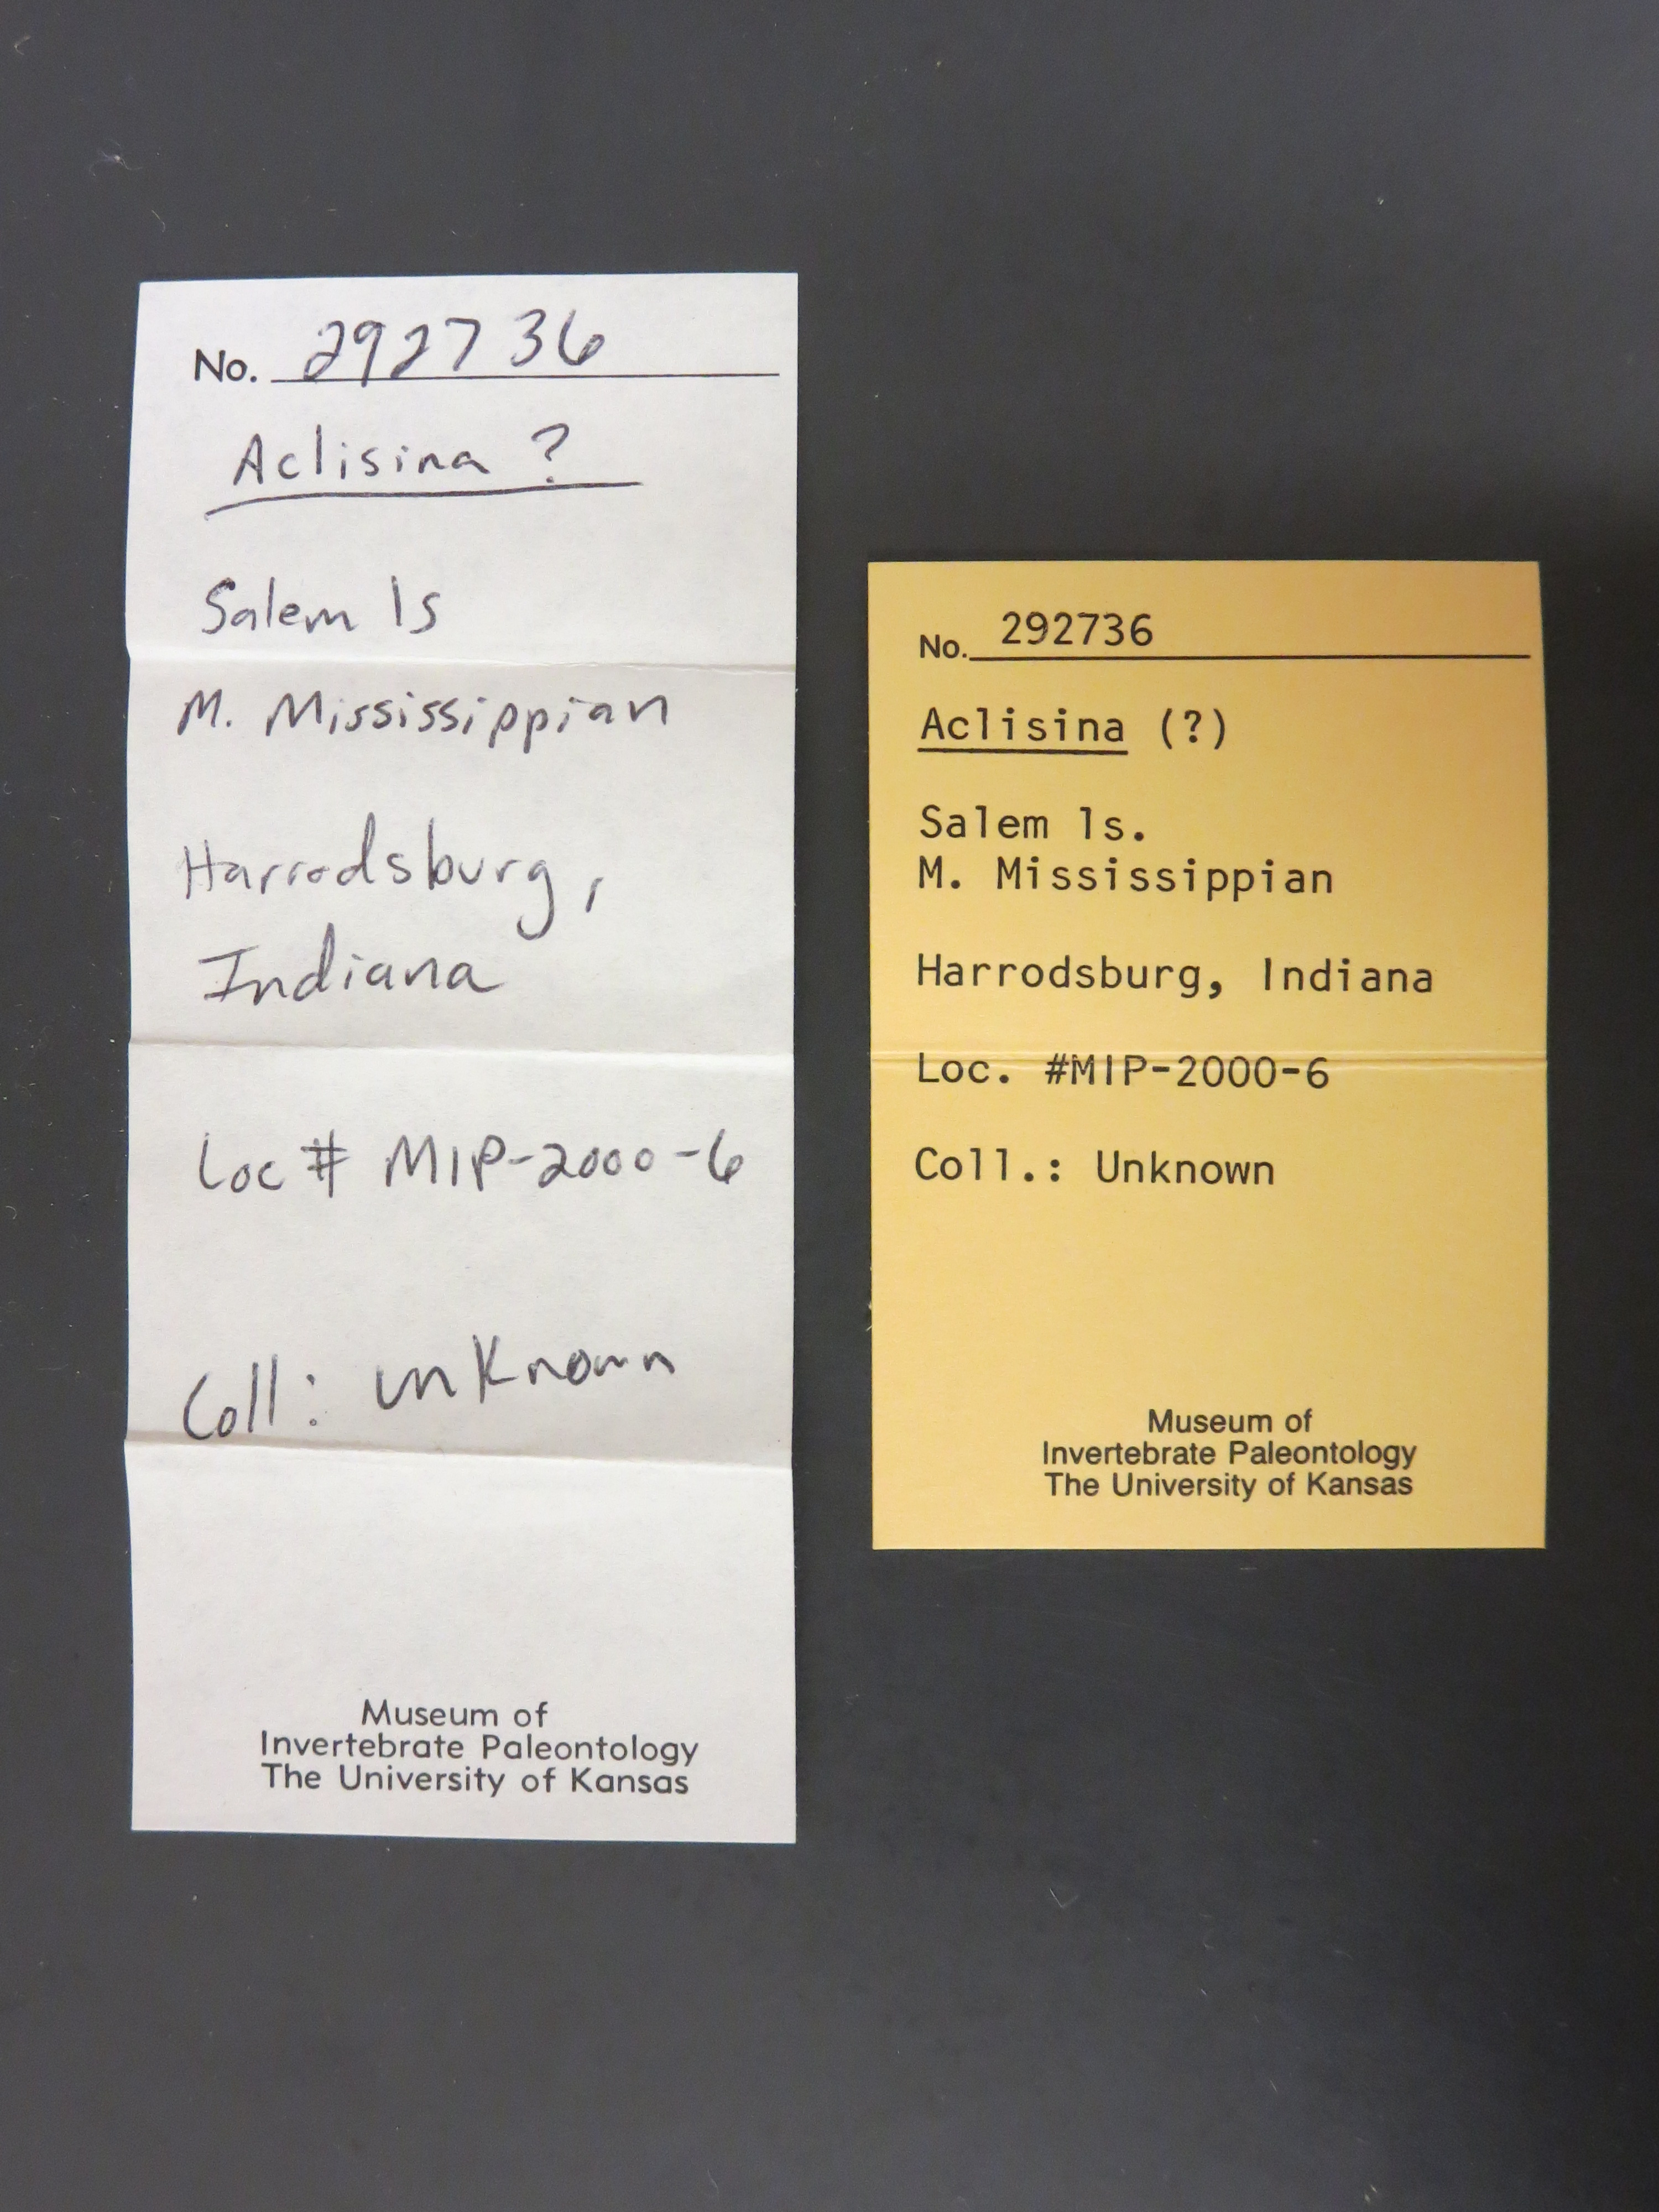 No. 292736
Aclisina ?
Salem ls
M. Mississippian
Harrodsburg,
Indiana
Loc # MIP-2000-6
Coll: unknown
Museum of
Invertebrate Paleontology
The University of Kansas
No. 292736
Aclisina (?)
Salem ls.
M. Mississippian
Harrodsburg, Indiana
Loc. #MIP-2000-6
Coll.: Unknown
Museum of
Invertebrate Paleontology
The University of Kansas